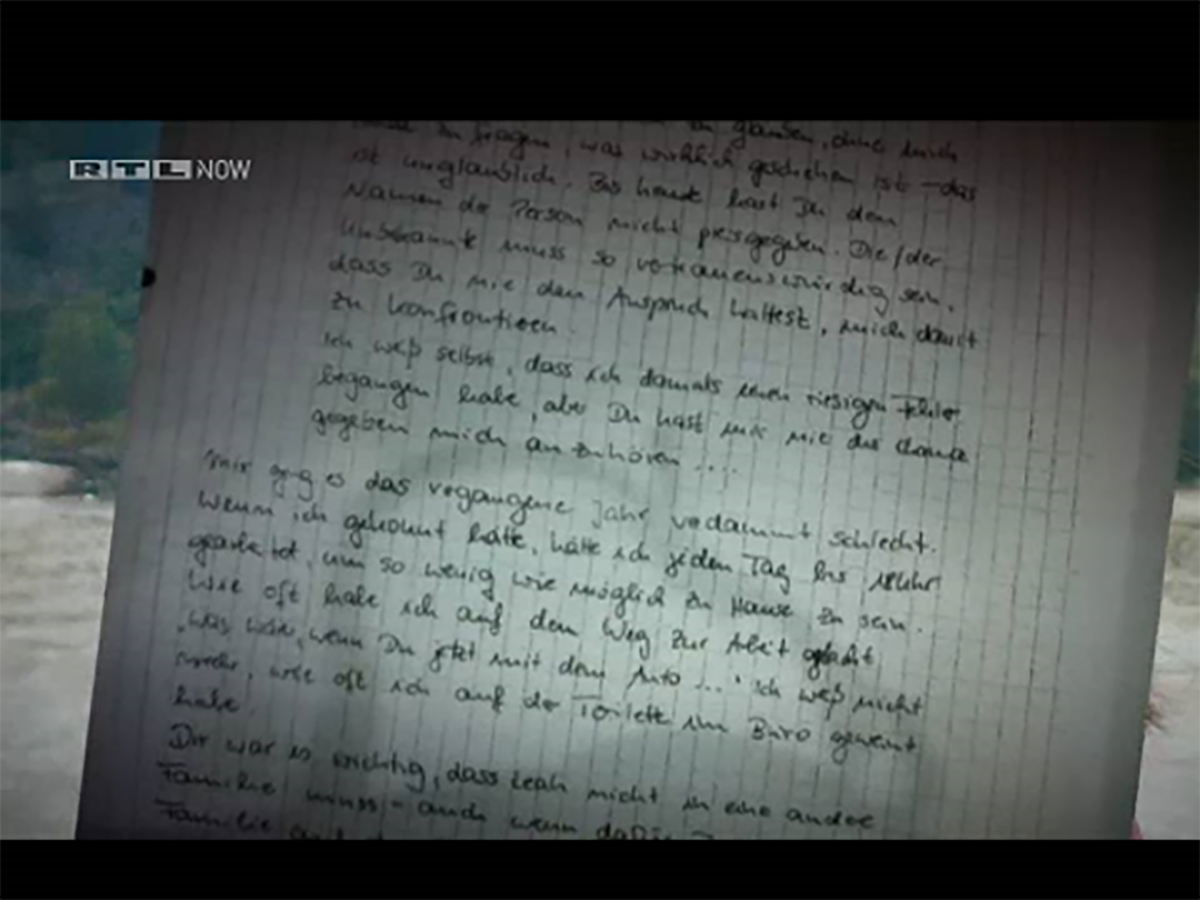 RTL NOW
glauben, ohne mich
zu fragen, was wirklich geschehen ist – das
ist unglaublich. Bis heute hast Du den
Namen der Person nicht preisgegeben. Die/der
Unbekannte muss so vertrauenswürdig sein,
dass Du nie den Anspruch hattest, mich damit
zu konfrontieren.
Ich weiß selbst, dass ich damals einen riesigen Fehler
begangen habe, aber Du hast mir nie die Chance
gegeben mich anzuhören ....
Mir ging es das vergangene Jahr verdammt schlecht.
Wenn ich gekonnt hätte, hätte ich jeden Tag bis
gearbeitet, um so wenig wie möglich zu Hause zu sein.
Wie oft habe ich auf dem Weg zur Arbeit gedacht
„was wär, wenn Du jetzt mit dem Auto ..." Ich weiß nicht
mehr, wie oft ich auf der Toilette im Büro geweint
habe.
Dir war es wichtig, dass Leah nicht in eine andere
Familie muss – auch wenn dafür
Familie auf